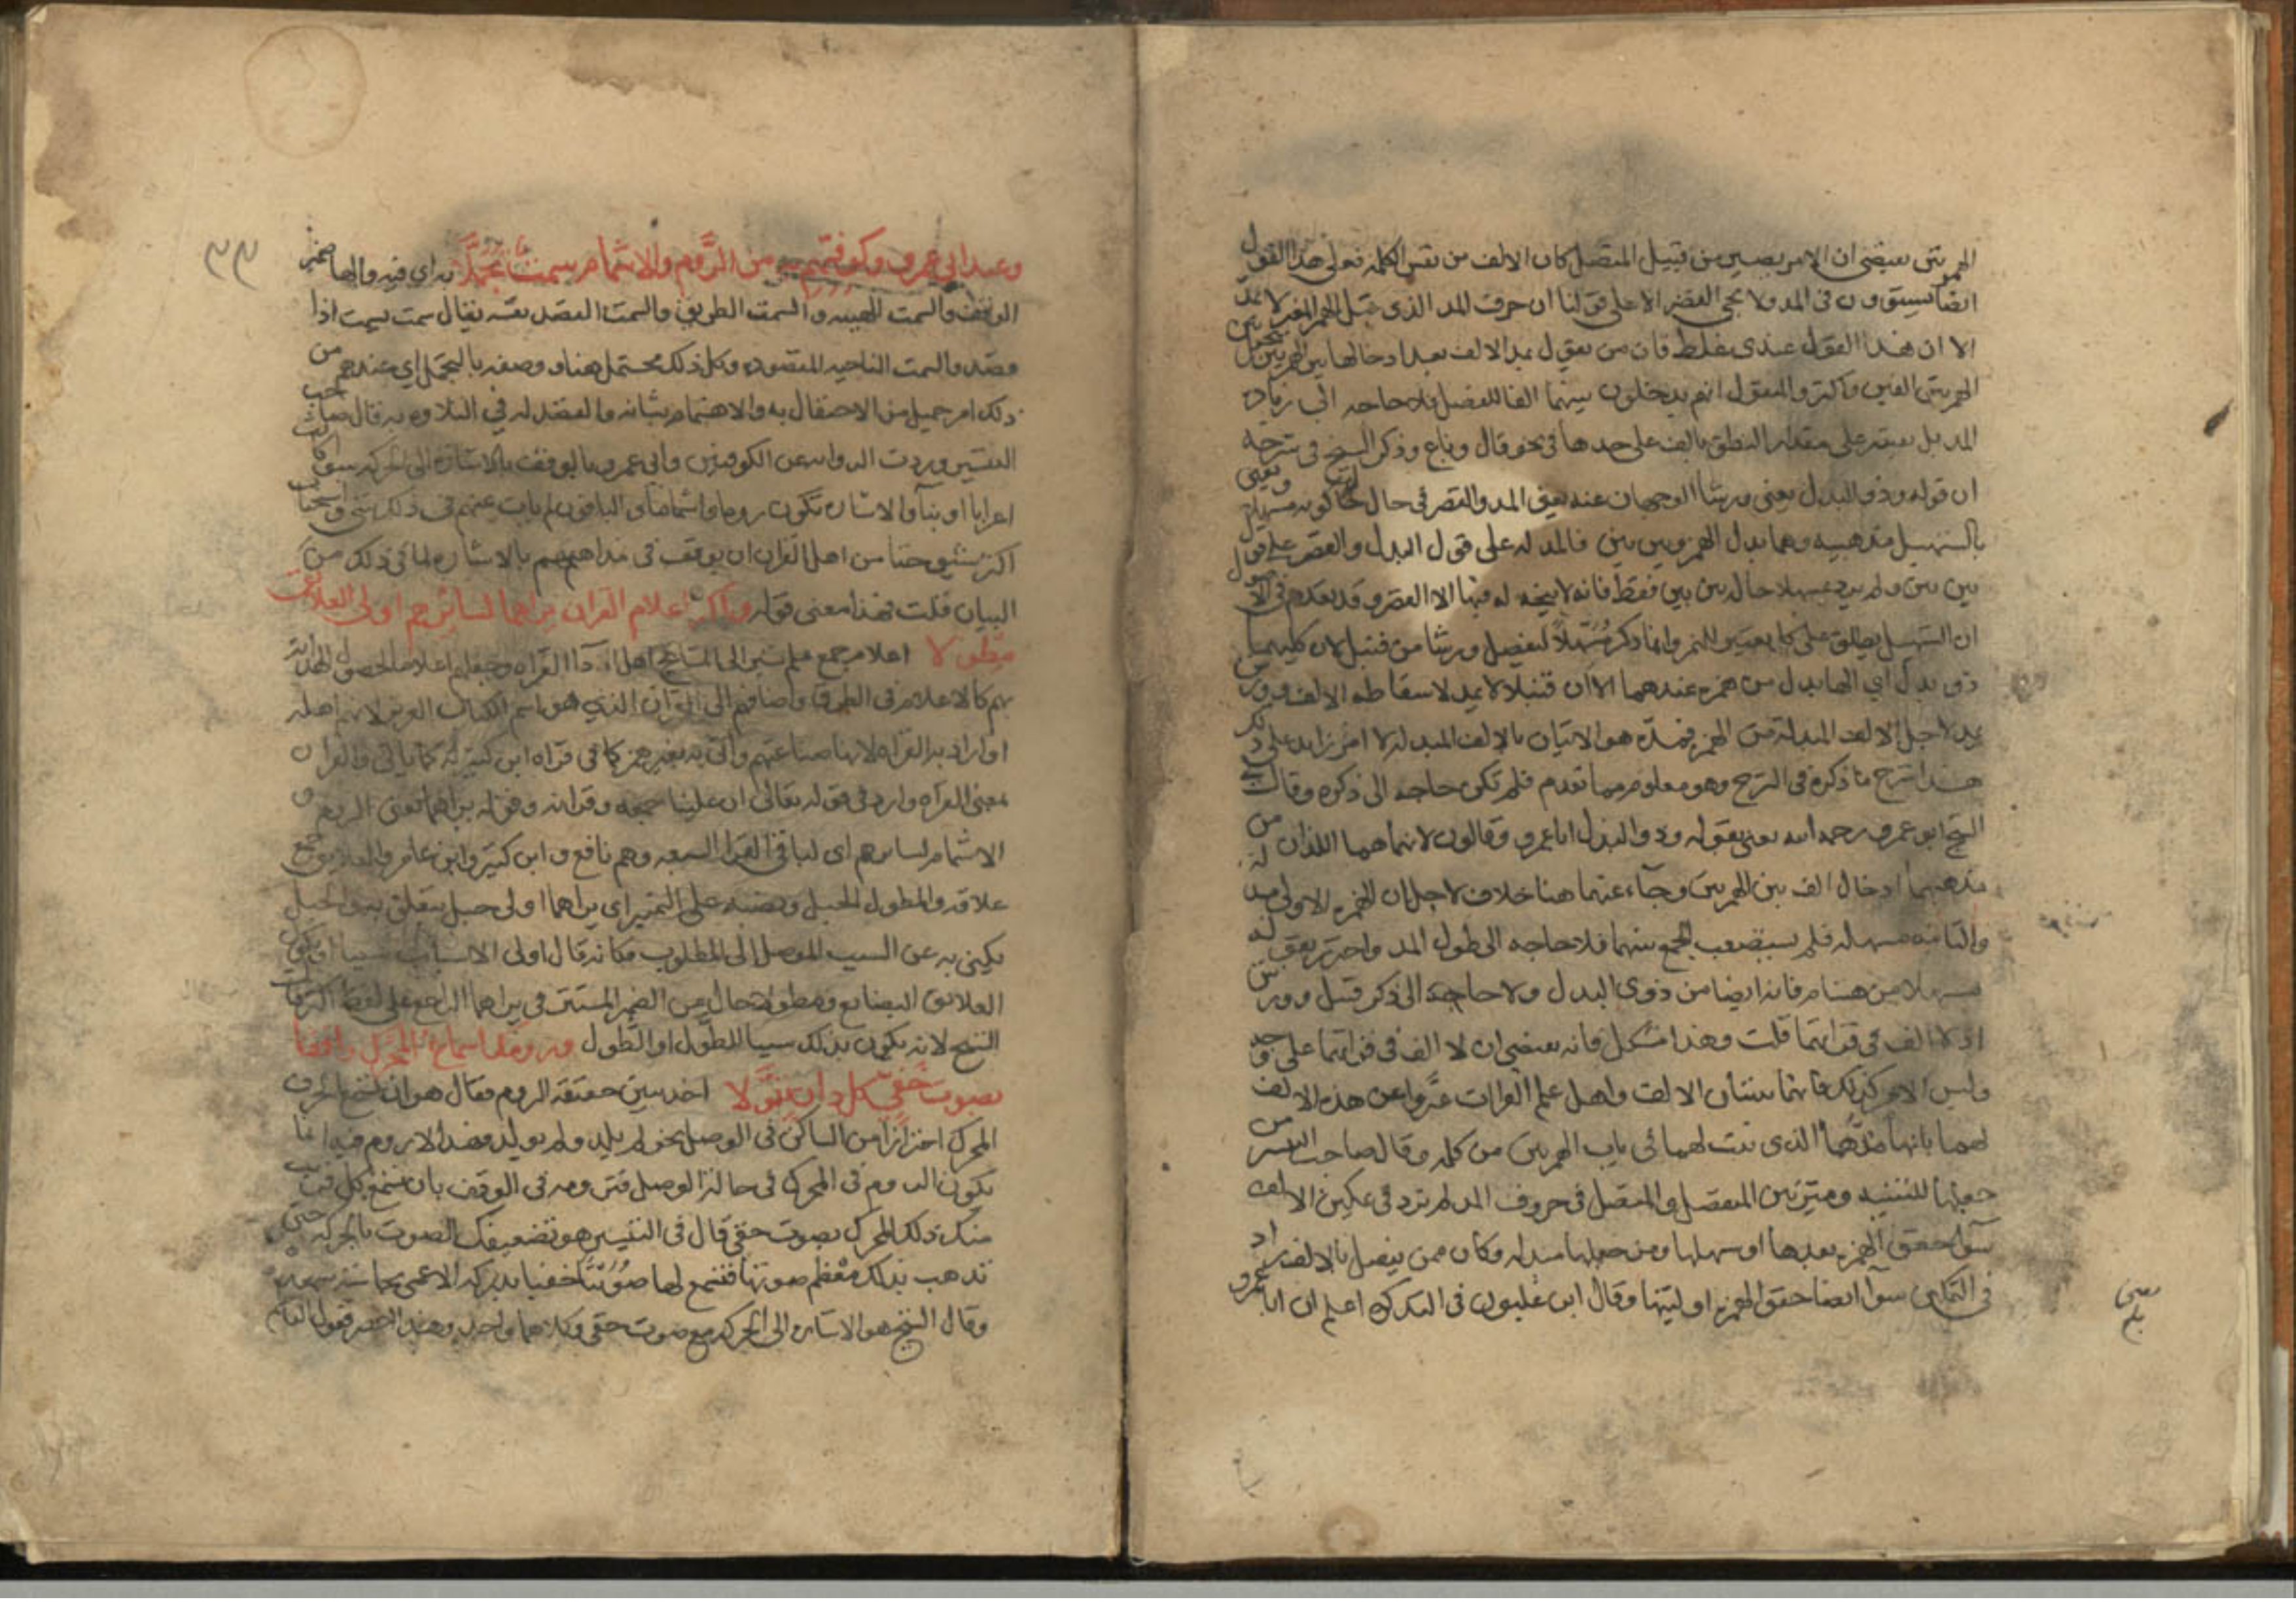 الهمزتين يقتضي ان الامر يصير من قبيل المتصل كان الالف من نفس الكلمة فعلى هذا القول
ايضا يستوون في المد ولا يجي القصر الا على قولنا ان حرف المد الذي قبل الهمز المغير لا يمد
الا ان هذا القول عندي غلط فان من يقول بمد الالف بعد ادخالها بين الهمزتين
الهمزتين الفين واكثر والمنقول انهم يدخلون بينهما الفا للفصل فلا حاجه الى زياده
المد بل يقتصر على مقدار النطق بالف على حدها في نحو قال وباع وذكر الشيخ في شرحه
ان قوله وذو البدل يعني ورشا الوجهان عنه يعني المد والقصر في حال كونه مسهلا ويعني
بالتسهيل مذهبيه وهما بدل الهمز وبين بين فالمد له على قول البدل والقصر على قول
بين بين ولم يرد بمسهلا حاله بين بين فقط فانه لا يتجه له فيها الا القصر وقد تقدم في الاصول
ان التسهيل يطلق على كل تغيير للهمز وانما ذكر مسهلا ليفصل ورشا من قنبل لان كليهما
ذو بدل اي الها بدل من همزة عندهما الا ان قنبلا لا يمد لاسقاطه الالف وورش
يمد لاجل الالف المبدلة من الهمزة فمده هو الاتيان بالالف المبدله لا امر زايد على ذلك
هذا شرح ما ذكره في الشرح وهو معلوم مما تقدم فلم تكن حاجه الى ذكره وقال
الشيخ ابو عمرو رحمه الله يعني بقوله وذو البدل ابا عمرو وقالون لانهما هما اللذان من
مذهبهما ادخال الف بين الهمزتين وجاء عنهما هنا خلاف لاجل ان الهمزه الاولى مبدله
والثانيه مسهله فلم يستصعب الجمع بينهما فلا حاجه الى طول المد واحترز بقوله
مسهلا من هشام فانه ايضا من ذوي البدل ولا حاجة الى ذكر قنبل وورش
اذ لا الف في قراتهما قلت وهذا مشكل فانه يقتضي ان لا الف في قراتهما على وجه
وليس الامر كذلك فانهما يثبتان الالف واهل علم القرات عبروا عن هذه الالف
لهما بانها مدهما الذي ثبت لهما في باب الهمزتين من كلمه وقال صاحب التيسير من
جعلها للتنبيه وميز بين المنفصل والمتصل في حروف المد لم يزد في تمكين الالف
سوا حقق الهمزه بعدها او سهلها ومن جعلها مبدله وكان ممن يفصل بالالف زاد
في التمكين سوا ايضا حقق الهمزه او لينها وقال ابن غلبون في التذكره اعلم ان ابا عمرو
٣٣
وعند ابي عمرو وكوفيهم به من الروم والاشمام سمت تجملا به اي فيه والها ضمير
الوقف والسمت الهيئه والسمت الطريق والسمت القصد نفسه يقال سمت يسمت اذا
قصد والسمت الناحيه المقصوده وكل ذلك محتمل هنا ووصفه بالتجمل اي عندهم من
ذلك امر جميل من الاحتفال به والاهتمام بشانه والقصد له في التلاوه به قال صاحب
التيسير وردت الروايه عن الكوفيين وابي عمرو بالوقف بالاشارة الى الحركه سوا كانت
اعرابا او بناء والاشاره تكون روما واشماما والباقون لم يات عنهم في ذلك شي واستحباب
اكثر شيوخنا من اهل القران ان يوقف في مذاهبهم بالاشاره لما في ذلك من
البيان قلت فهذا معنى قوله واكثر اعلام القران يراهما لسائرهم اولى العلائق
مطولا اعلام جمع علم يشير الى المشايخ اهل اداء القراه وجعلهم اعلاما لحصول الهدايه
بهم كالاعلام في الطرق واضافهم الى القران الذي هو اسم الكتاب العزيز لانهم اهله
او اراد به القراه لانها صناعتهم واتى به بغير همز كما في قراه ابن كثير له كما ياتي والقران
بمعنى القراه وارد في قوله تعالى ان علينا جمعه وقرانه وقوله يراهما يعني الروم و
الاشمام لسائرهم اي لباقي القراء السبعه وهم نافع وابن كثير وابن عامر والعلايق جمع
علاقه والمطول الحبل ونصبه على التمييز اي يراهما اولى حبل يتعلق به والحبل
يكنى به عن السبب الموصل الى المطلوب فكانه قال اولى الاسباب سببا او يكون
العلايق البضايع ومطولا حال من الضمير المستتر في يراهما الراجع على لفظ اكثر قال
الشيخ لانه يكون بذلك سببا للطول او الطول ورومك اسماع المحرك واقفا
بصوت خفي كل دان تنولا اخذ يبين حقيقة الروم فقال هو ان تسمع الحرف
المحرك احترازا من الساكن في الوصل نحو لم يلد ولم يولد فهذا لا روم فيه انما
يكون الروم في المحرك في حالة الوصل فترومه في الوقف بان تسمع كل قريب
منك ذلك المحرك بصوت خفي قال في التيسير هو تضعيفك الصوت بالحركه حتى
تذهب بذلك معظم صوتها فتسمع لها صويتا خفيا يدركه الاعمى بحاسة سمعه
وقال الشيخ هو الاشاره الى الحركه مع صوت خفي وكلاهما واحد وهذا اخصر فقول الناظم